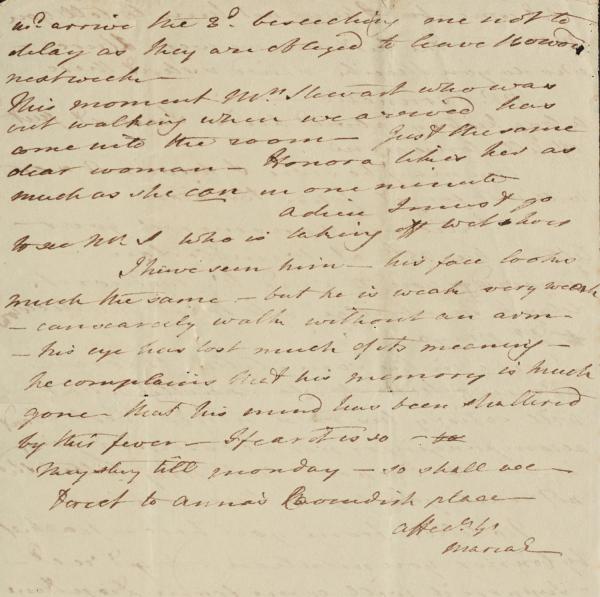 arrive the 3d. beseeching me not to
delay as they are obliged to leave
next week —
This moment Mrs Stewart who was
out walking when we arrived has
come into the room — Just the same
dear woman — Honora likes her as
much as she can in one minute
adieu I must go
to see Mr S who is taking off wet shoes
I have seen him — his face looks
much the same — but he is weak very weak
— can scarcely walk without an arm —
— his eye has lost much of its meaning —
he complains that his memory is much
gone — that his mind has been shattered
by this fever — I fear it is so —
stay till monday — so shall we —
Direct to Anna's Cavendish place —
affecly
Maria E